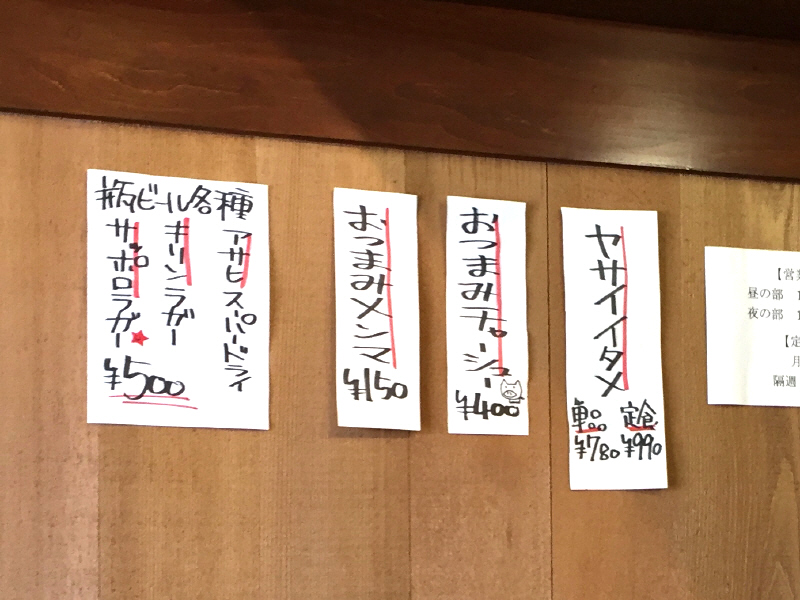 瓶ビール各種
アサヒスーパードライ
キリンラガー
サッポロラガー★
¥500
おつまみメンマ
¥150
おつまみチャーシュー
¥400
ヤサイイタメ
単品 定食
¥780 ¥990
【営業
昼の部 1
夜の部 1
【定
月
隔週